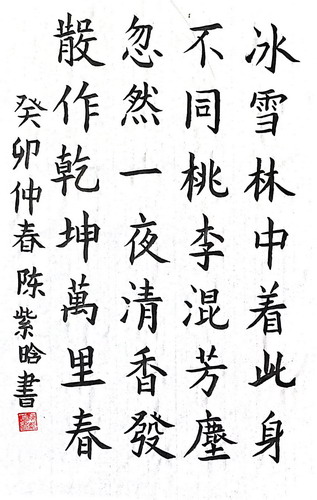 冰雪林中着此身
不同桃李混芳塵
忽然一夜清香發
散作乾坤萬里春
癸卯仲春陈紫晗書